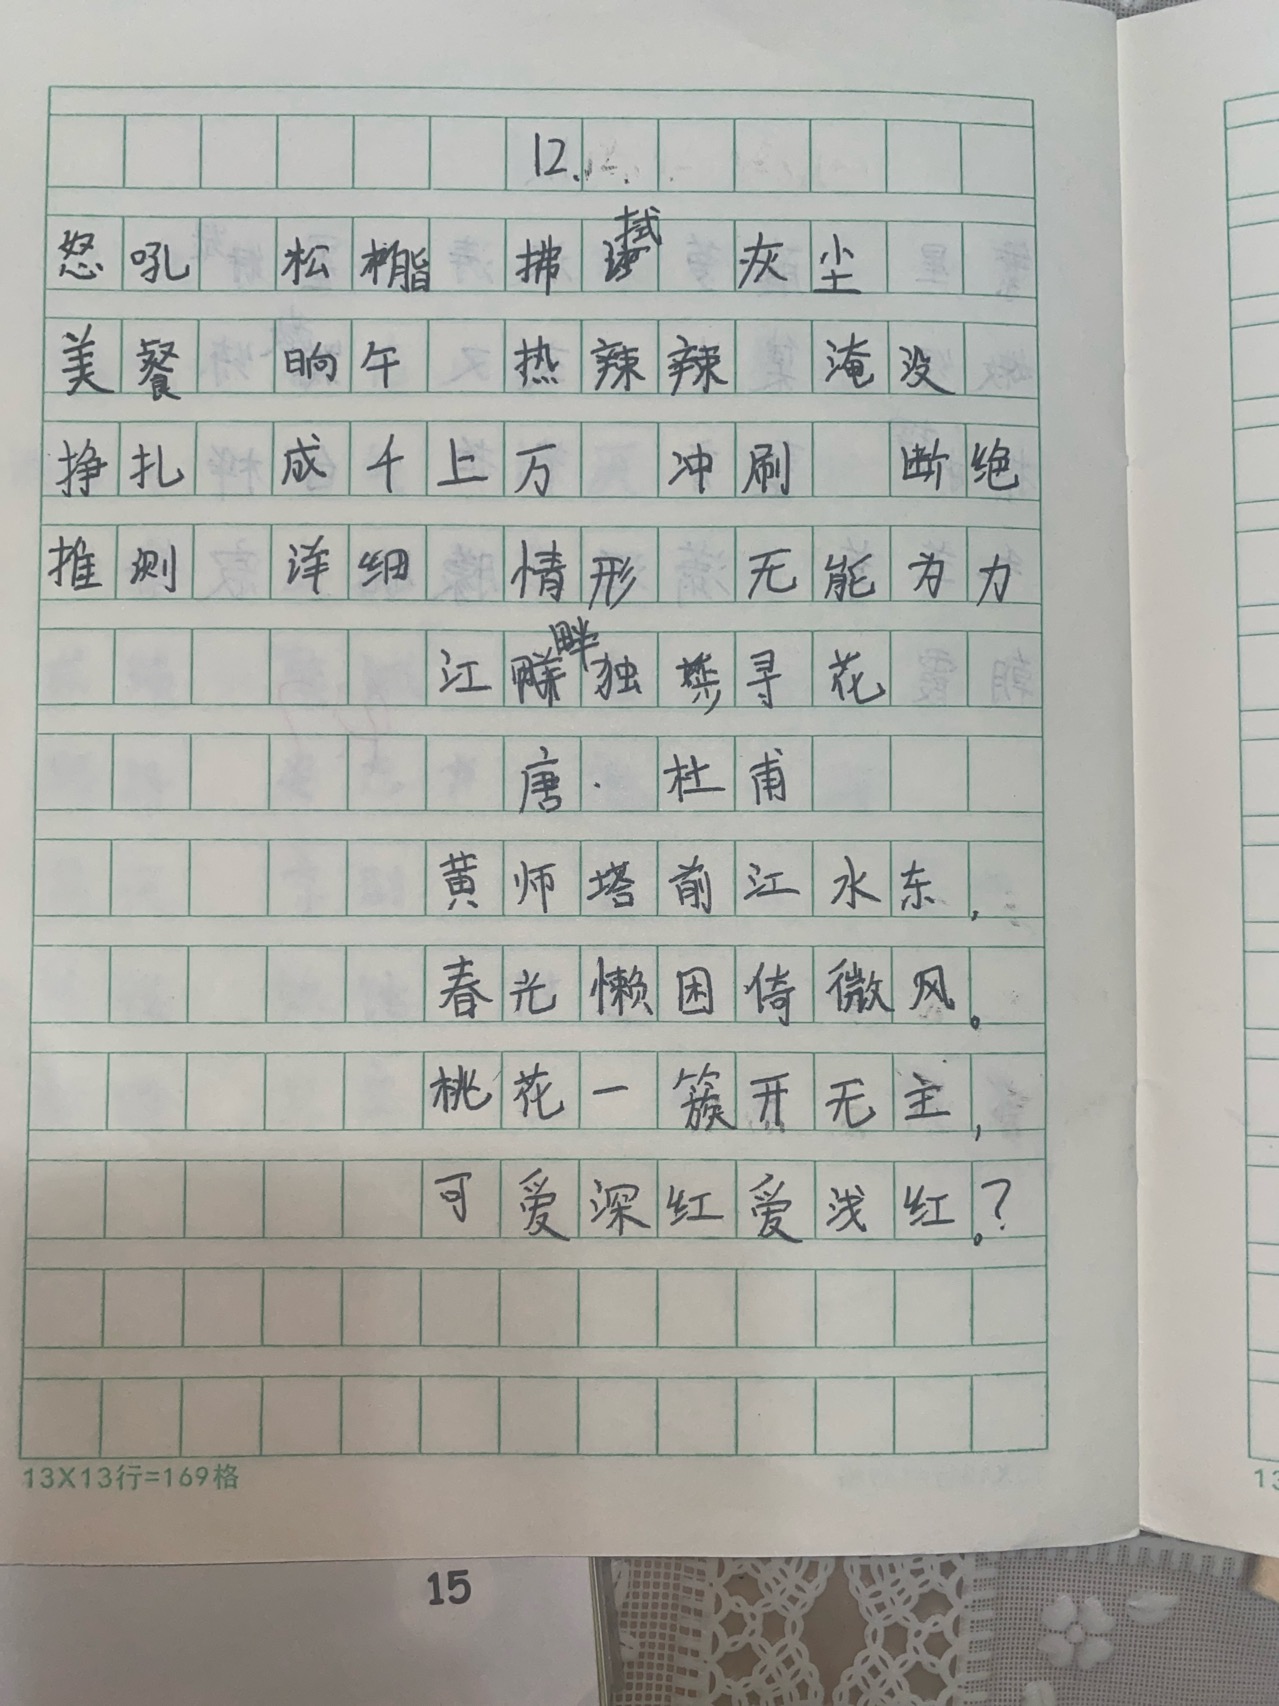 12.
怒吼 松脂 拂拭 灰尘
美餐 晌午 热辣辣 淹没
挣扎 成千上万 冲刷 断绝
推测 详细 情形 无能为力
江畔独步寻花
唐·杜甫
黄师塔前江水东,
春光懒困倚微风。
桃花一簇开无主,
可爱深红爱浅红。?
13X13行=169格
15